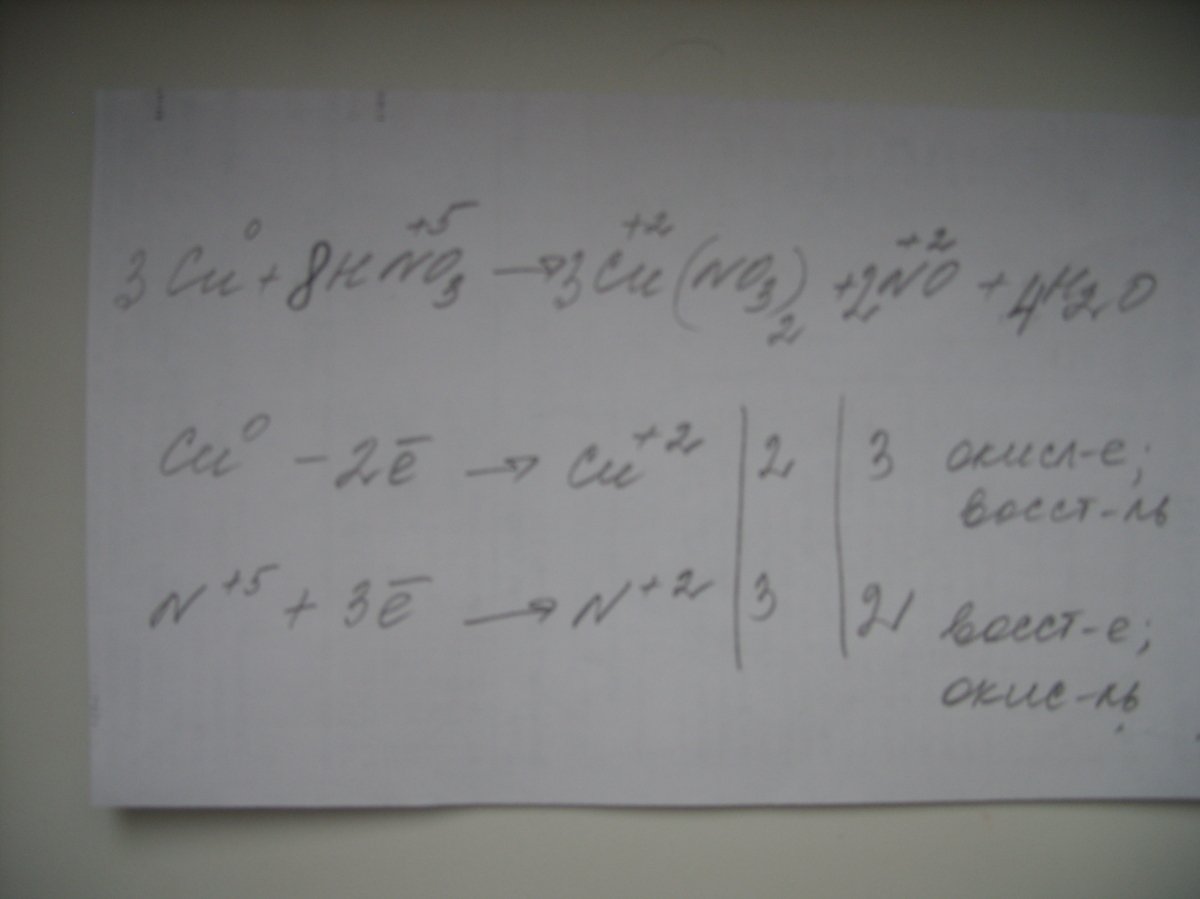 3Cu⁰ + 8HN⁺⁵O₃ → 3Cu⁺²(NO₃)₂ + 2N⁺²O + 4H₂O
Cu⁰ – 2ē → Cu⁺² | 2 | 3 окисл-е;
восст-ль
N⁺⁵ + 3ē → N⁺² | 3 | 2 восст-е;
окис-ль